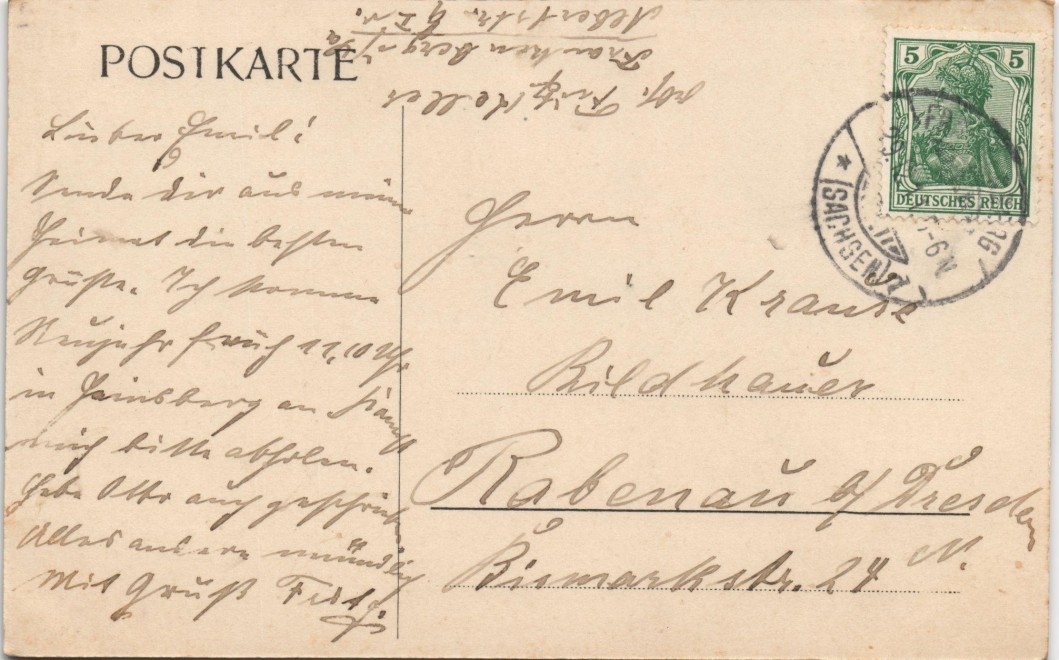 POSTKARTE
Lieber Emil!
Sende dir aus meiner
Heimat die besten
Grüße. Ich komme
Neujahr früh 11,10 Uhr
in Hainsberg an
mich bitte abholen.
Habe Otto auch geschrieben
Alles andere mündlich
Mit Gruß Fritz.
Abs. Fritz
Frankenberg i/Sa
Albertstr. 9 I r.
5 5
DEUTSCHES REICH
(SACHSEN)
5-6N
Herrn
Emil Krause
Bildhauer
Rabenau b/ Dresden
Bismarkstr. 24 N.